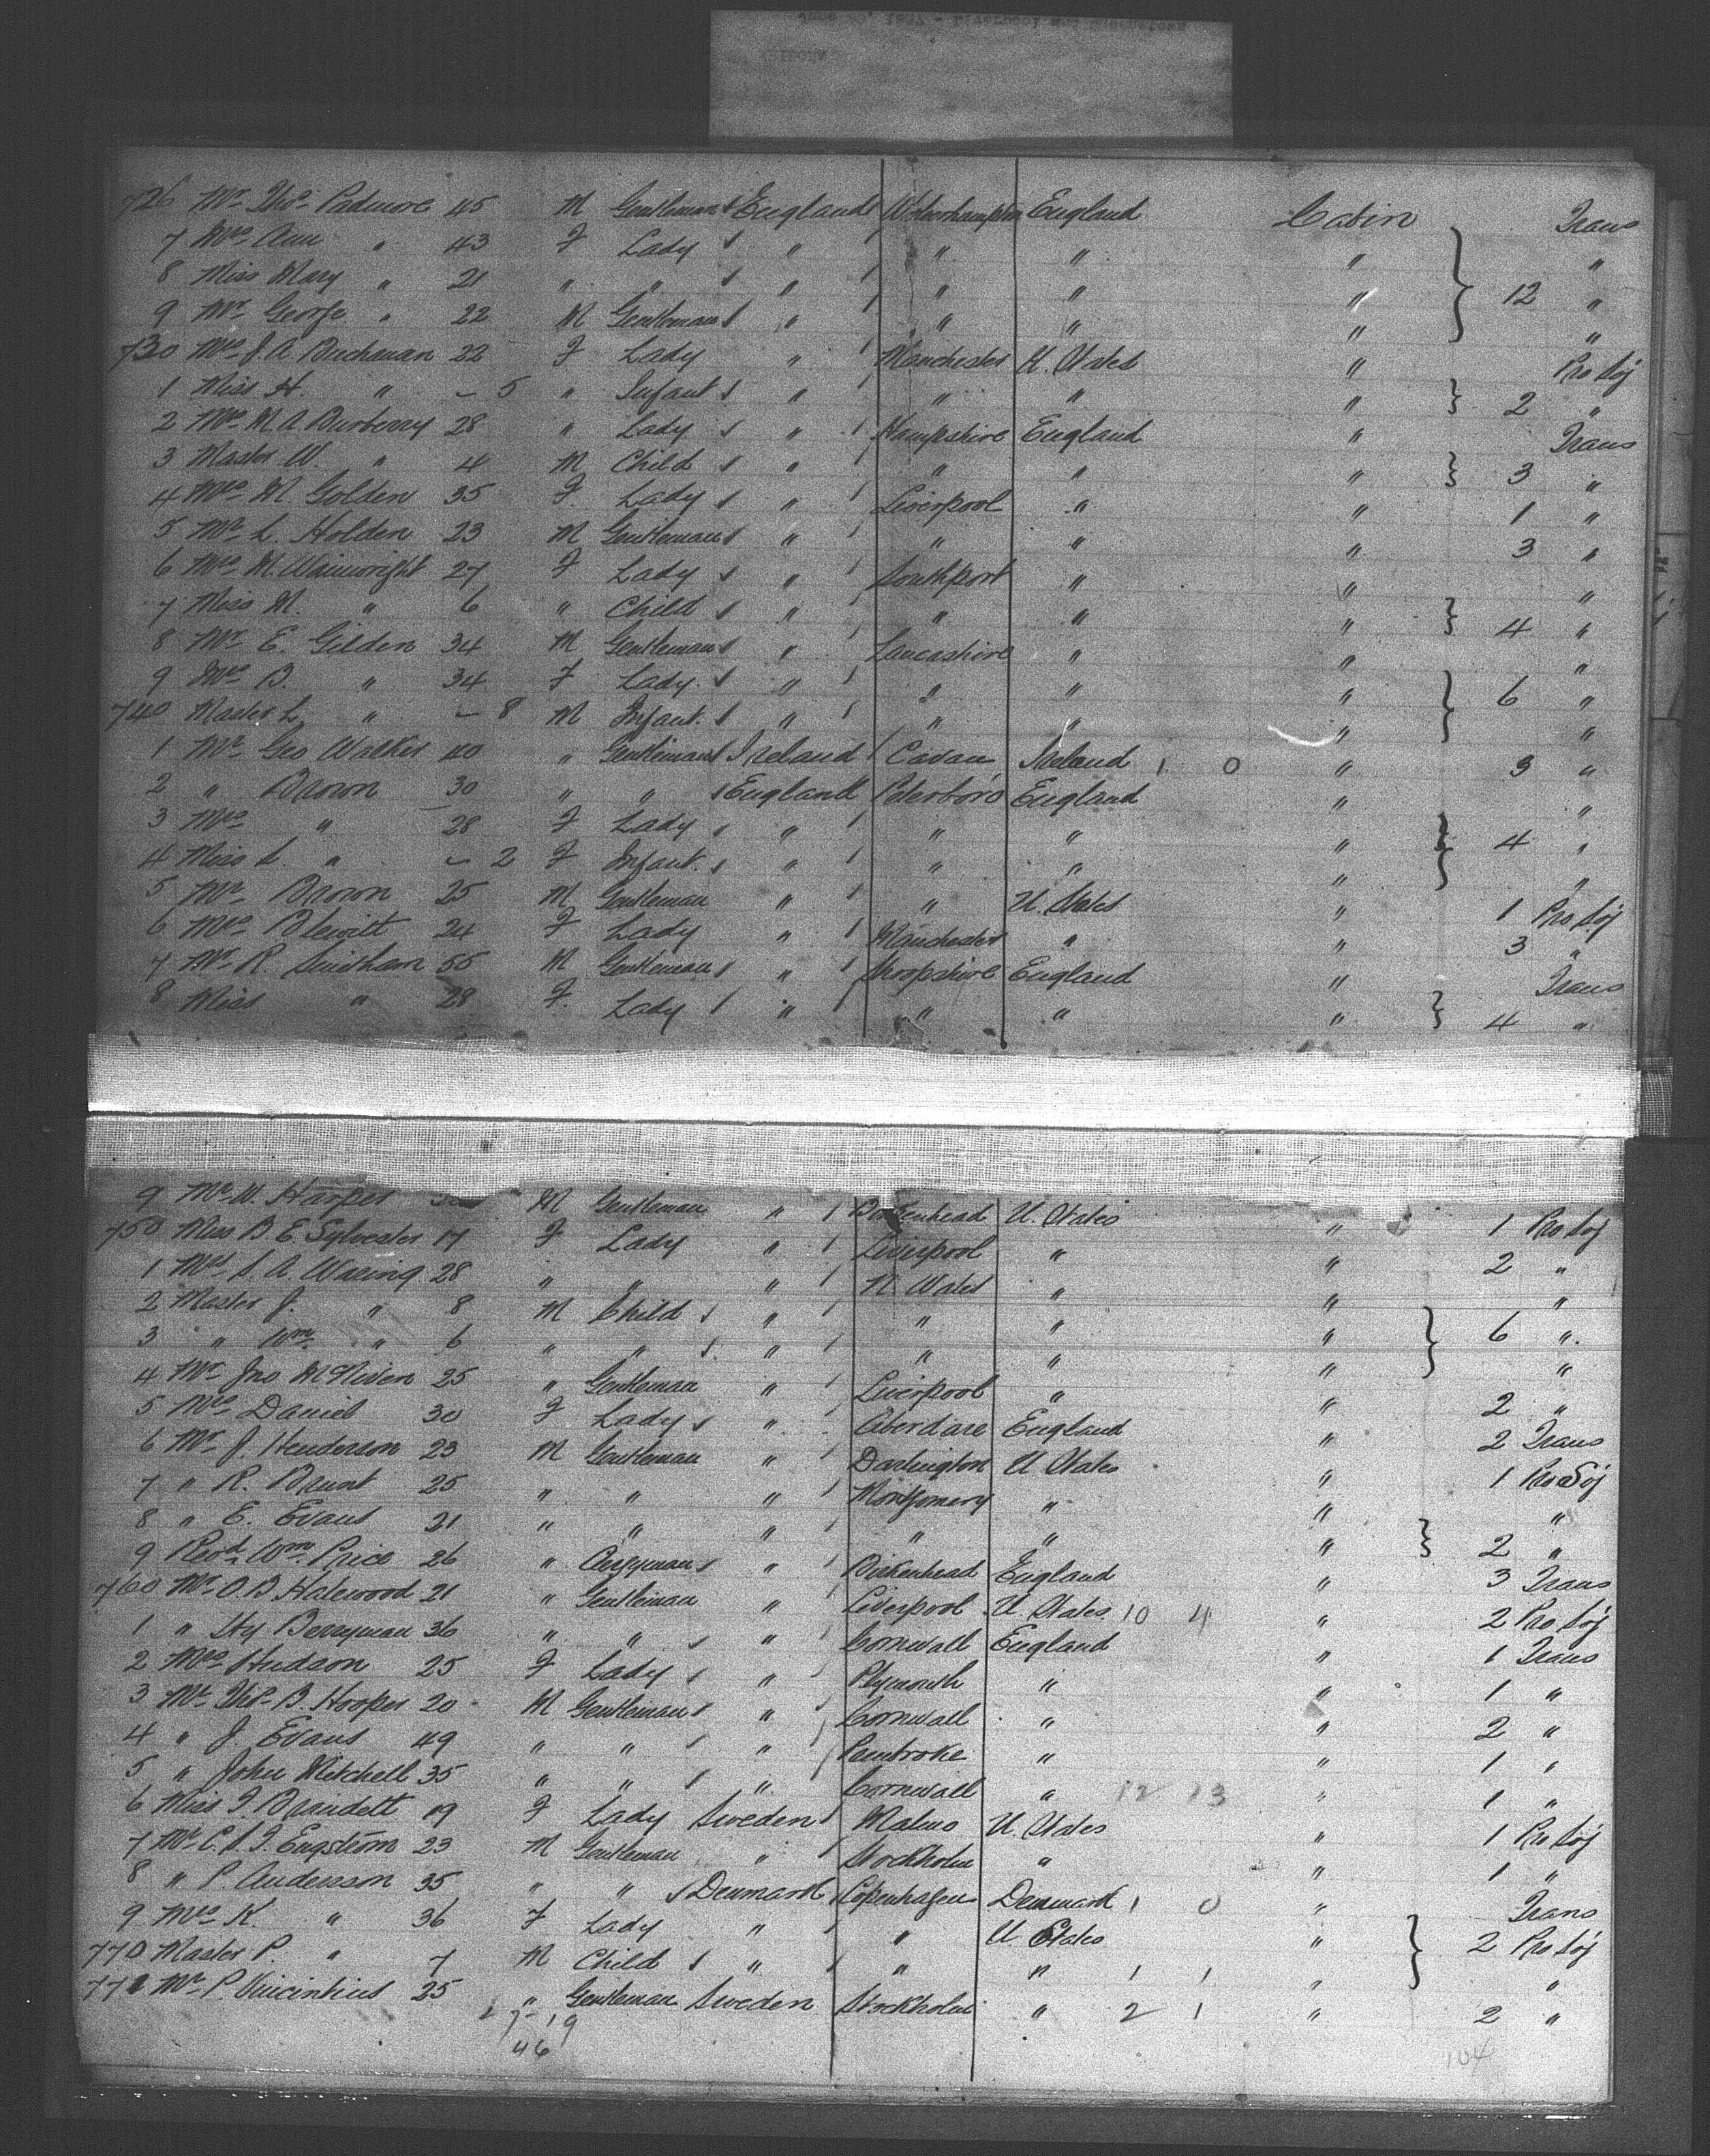 726 Mr. Thos. Padmore 45 M Gentleman England Wolverhampton England Cabin Trans
7 Mrs Ann " 43 F Lady " " " " "
8 Miss Mary " 21 " " " " " " 12 "
9 Mr. George " 22 M Gentleman " " " " "
730 Mrs J. A. Buchanan 22 F Lady " Manchester U. States " Pro Soj
1 Miss H. " - 5 " Infant " " " " 2 "
2 Mrs M A Burberry 28 " Lady " Hampshire England " Trans
3 Master W. " 4 M Child " " " " 3 "
4 Mrs M Golden 35 F Lady " Liverpool " " 1 "
5 Mr. L. Holden 23 M Gentleman " " " " 3 "
6 Mrs M. Wainwright 27 F Lady " Southport " " "
7 Miss M. " 6 " Child " " " " 4 "
8 Mr. E. Gilden 34 M Gentleman " Lancashire " " "
9 Mrs B. " 34 F Lady " " " " 6 "
740 Master L. " - 8 M Infant. " " " " "
1 Mr. Geo Walker 40 " Gentleman Ireland Cavan Ireland 1 0 " 3 "
2 " Brown 30 " " England Peterboro England " "
3 Mrs " 28 F Lady " " " " 4 "
4 Miss S. " - 2 F Infant. " " " " "
5 Mr. Brown 25 M Gentleman " " U. States " 1 Pro Soj
6 Mrs Blewitt 24 F Lady " Manchester " " 3 "
7 Mr. R. 55 M Gentleman " Shropshire England " Trans
8 Miss " 28 F. Lady " " " " 4 "
9 Mr. W. Harper M Gentleman " Birkenhead U. States " 1 Pro Soj
750 Miss B. E. Sylvester 17 F Lady " Liverpool " " 2 "
1 Mrs S. A. Waring 28 " " " N. Wales " " "
2 Master J. " 8 M Child " " " " 6 "
3 " Wm. " 6 " " " " " " "
4 Mr. Jno McNiven 25 " Gentleman " Liverpool " " 2 "
5 Mrs Daniel 30 F Lady " Aberdare England " 2 Trans
6 Mr. J. Henderson 23 M Gentleman " Darlington U States " 1 Pro Soj
7 " R. Brunt 25 " " " Montgomery " " "
8 " E. Evans 21 " " " " " " 2 "
9 Revd. Wm. Price 26 " Clergyman " Birkenhead England " 3 Trans
760 Mr. O. B. Halewood 21 " Gentleman " Liverpool U. States 10 4 " 2 Pro Soj
1 " Hy Berryman 36 " " " Cornwall England " 1 Trans
2 Mrs Hudson 25 F Lady " Plymouth " " 1 "
3 Mr. Thos. B. Hooper 20 M Gentleman " Cornwall " " 2 "
4 " J. Evans 49 " " " Pembroke " " 1 "
5 " John Mitchell 35 " " " Cornwall " 12 13 " 1 "
6 Miss J. Brandett 19 F Lady Sweden Malmo U. States " 1 Pro Soj
7 Mr. C. S. J. Engström 23 M Gentleman " Stockholm " " 1 "
8 " P. Anderson 35 " " Denmark Copenhagen Denmark 1 0 " Trans
9 Mrs K. " 36 F Lady " " U. States " 2 Pro Soj
770 Master P. " 7 M Child " " " 1 1 " "
771 Mr. P. 25 " Gentleman Sweden Stockholm " 2 1 " 2 "
27-19
46
104